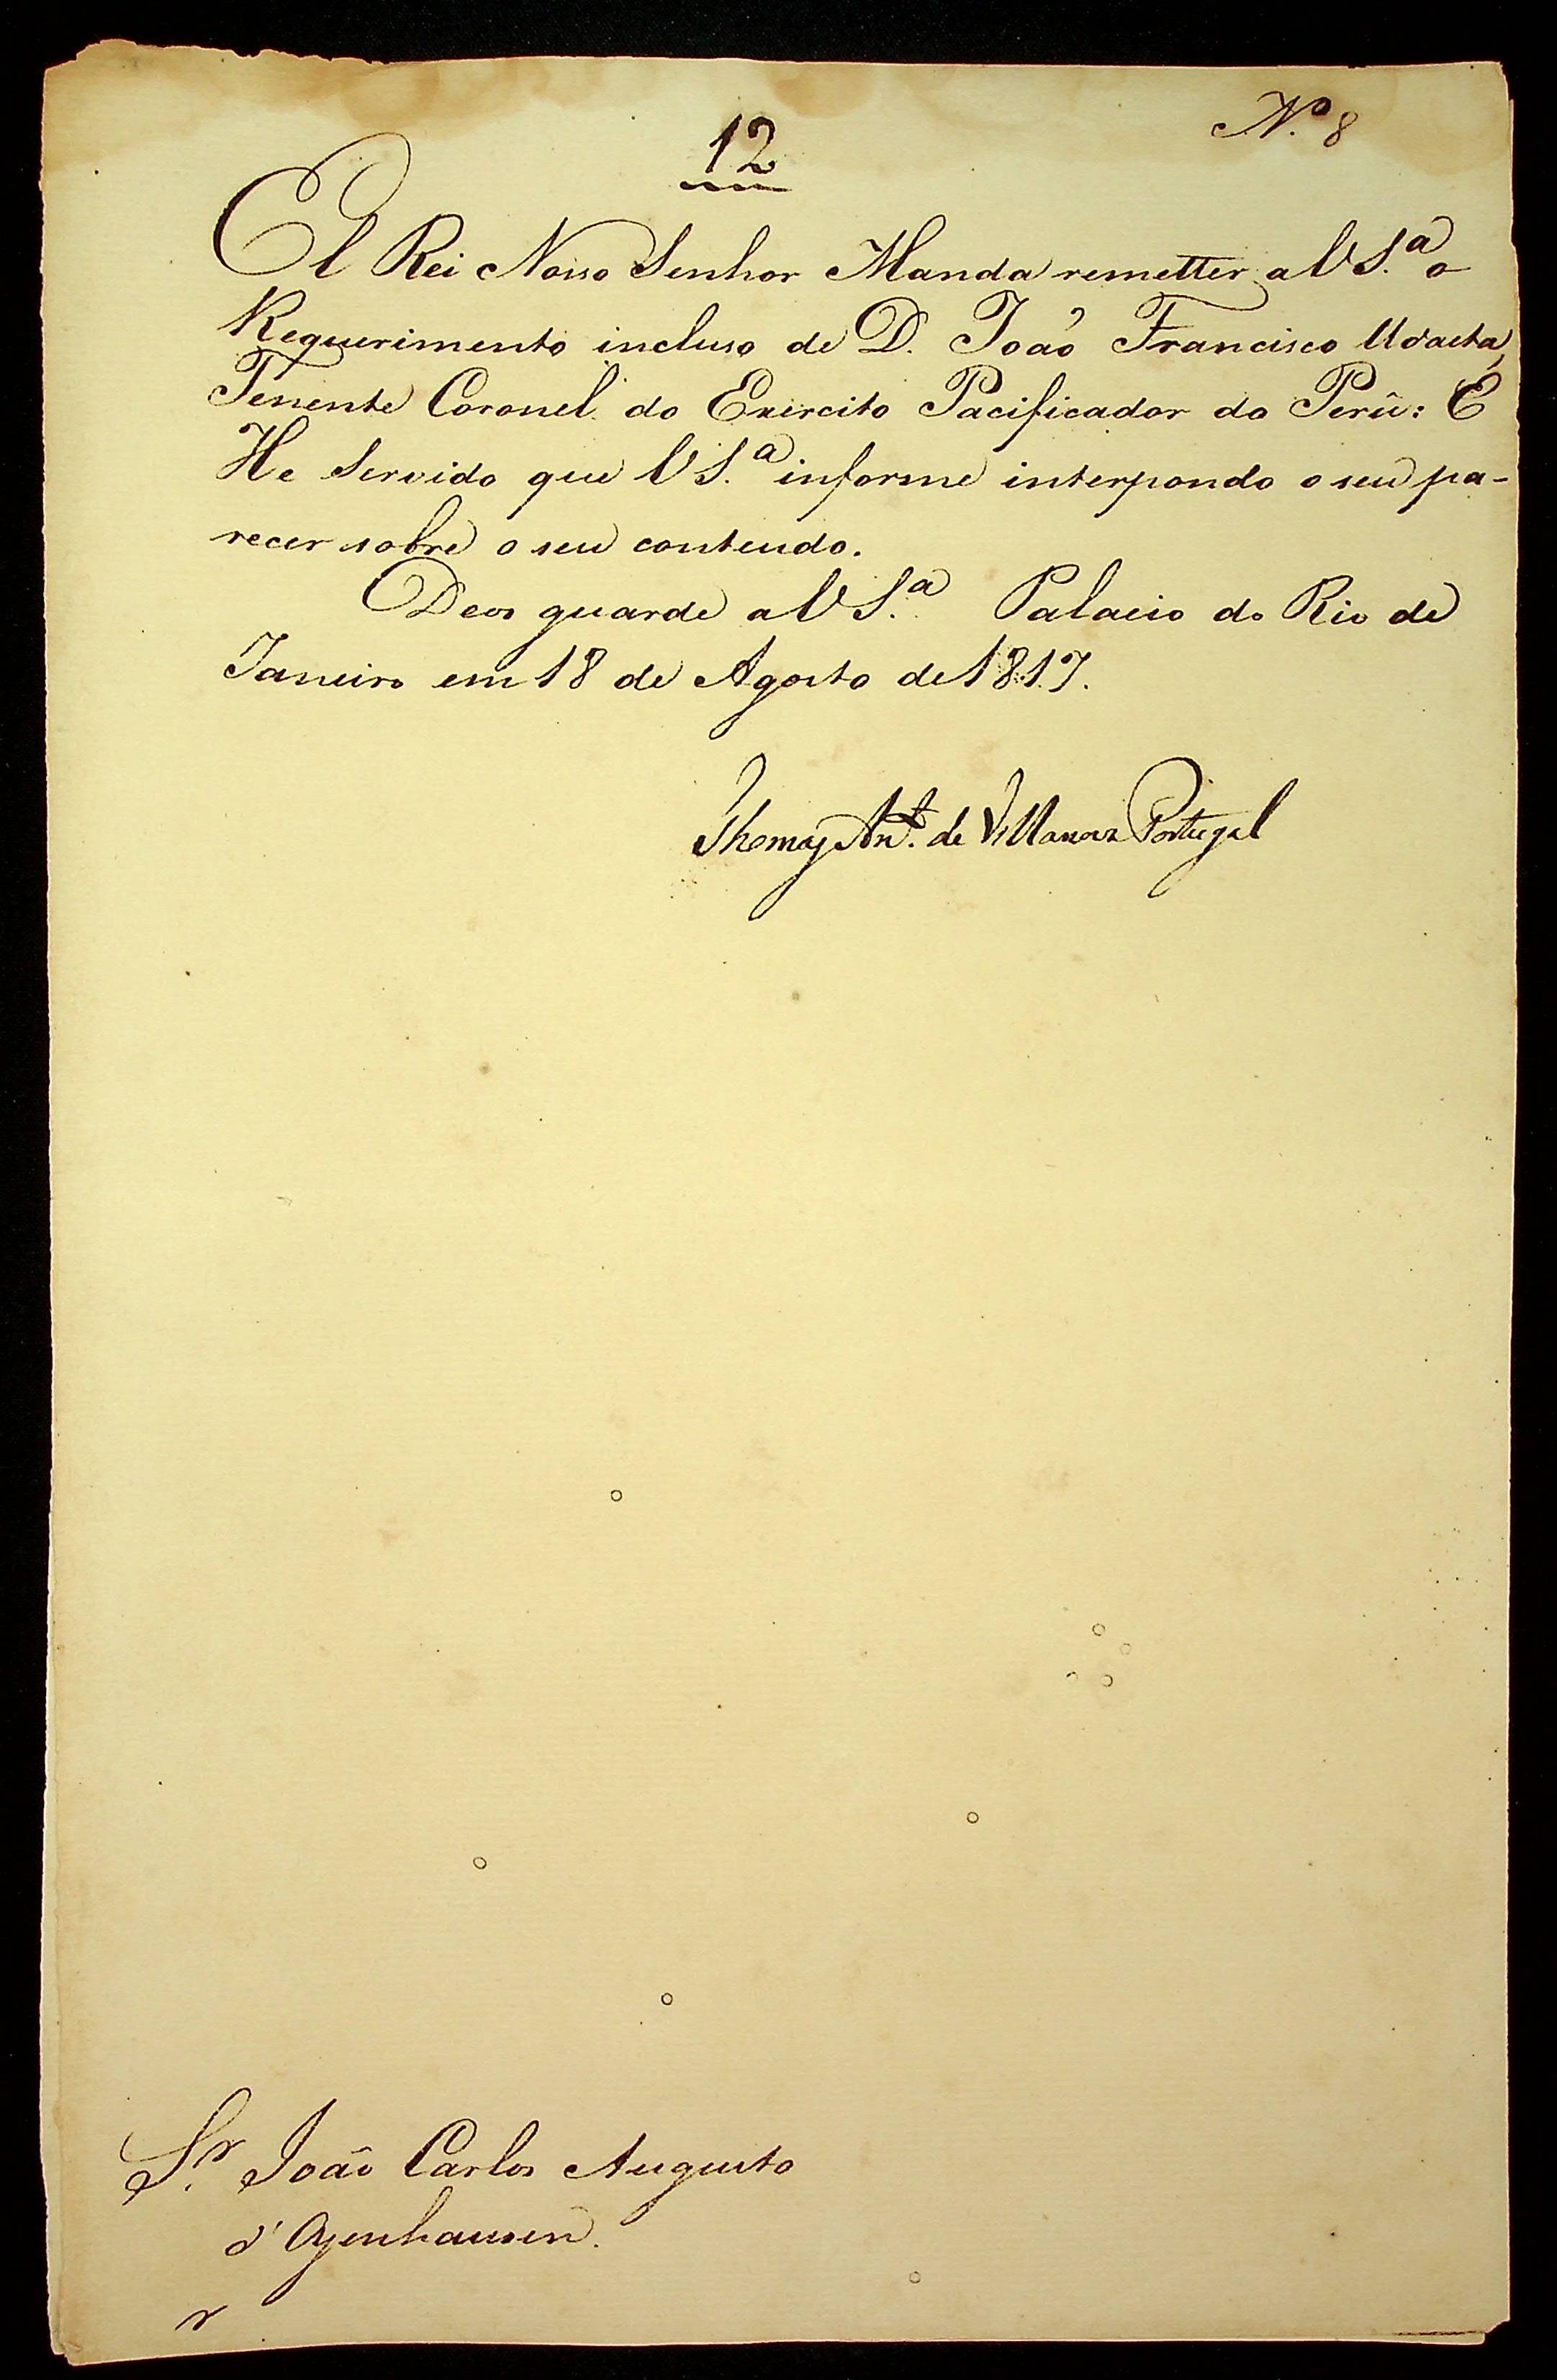 N.º 8
12
El Rei Nosso Senhor Manda remetter a V S.ª o
Requerimento incluso de D. João Francisco Udaeta,
Tenente Coronel do Exercito Pacificador do Perû: E
He Servido que V S.ª informe interpondo o seu pa-
recer sobre o seu conteudo.
Deos guarde a V S.ª Palacio do Rio de
Janeiro em 18 de Agosto de 1817.
Thomaz Ant.º de Villanova Portugal
S.r João Carlos Augusto
d'Oyenhausen.